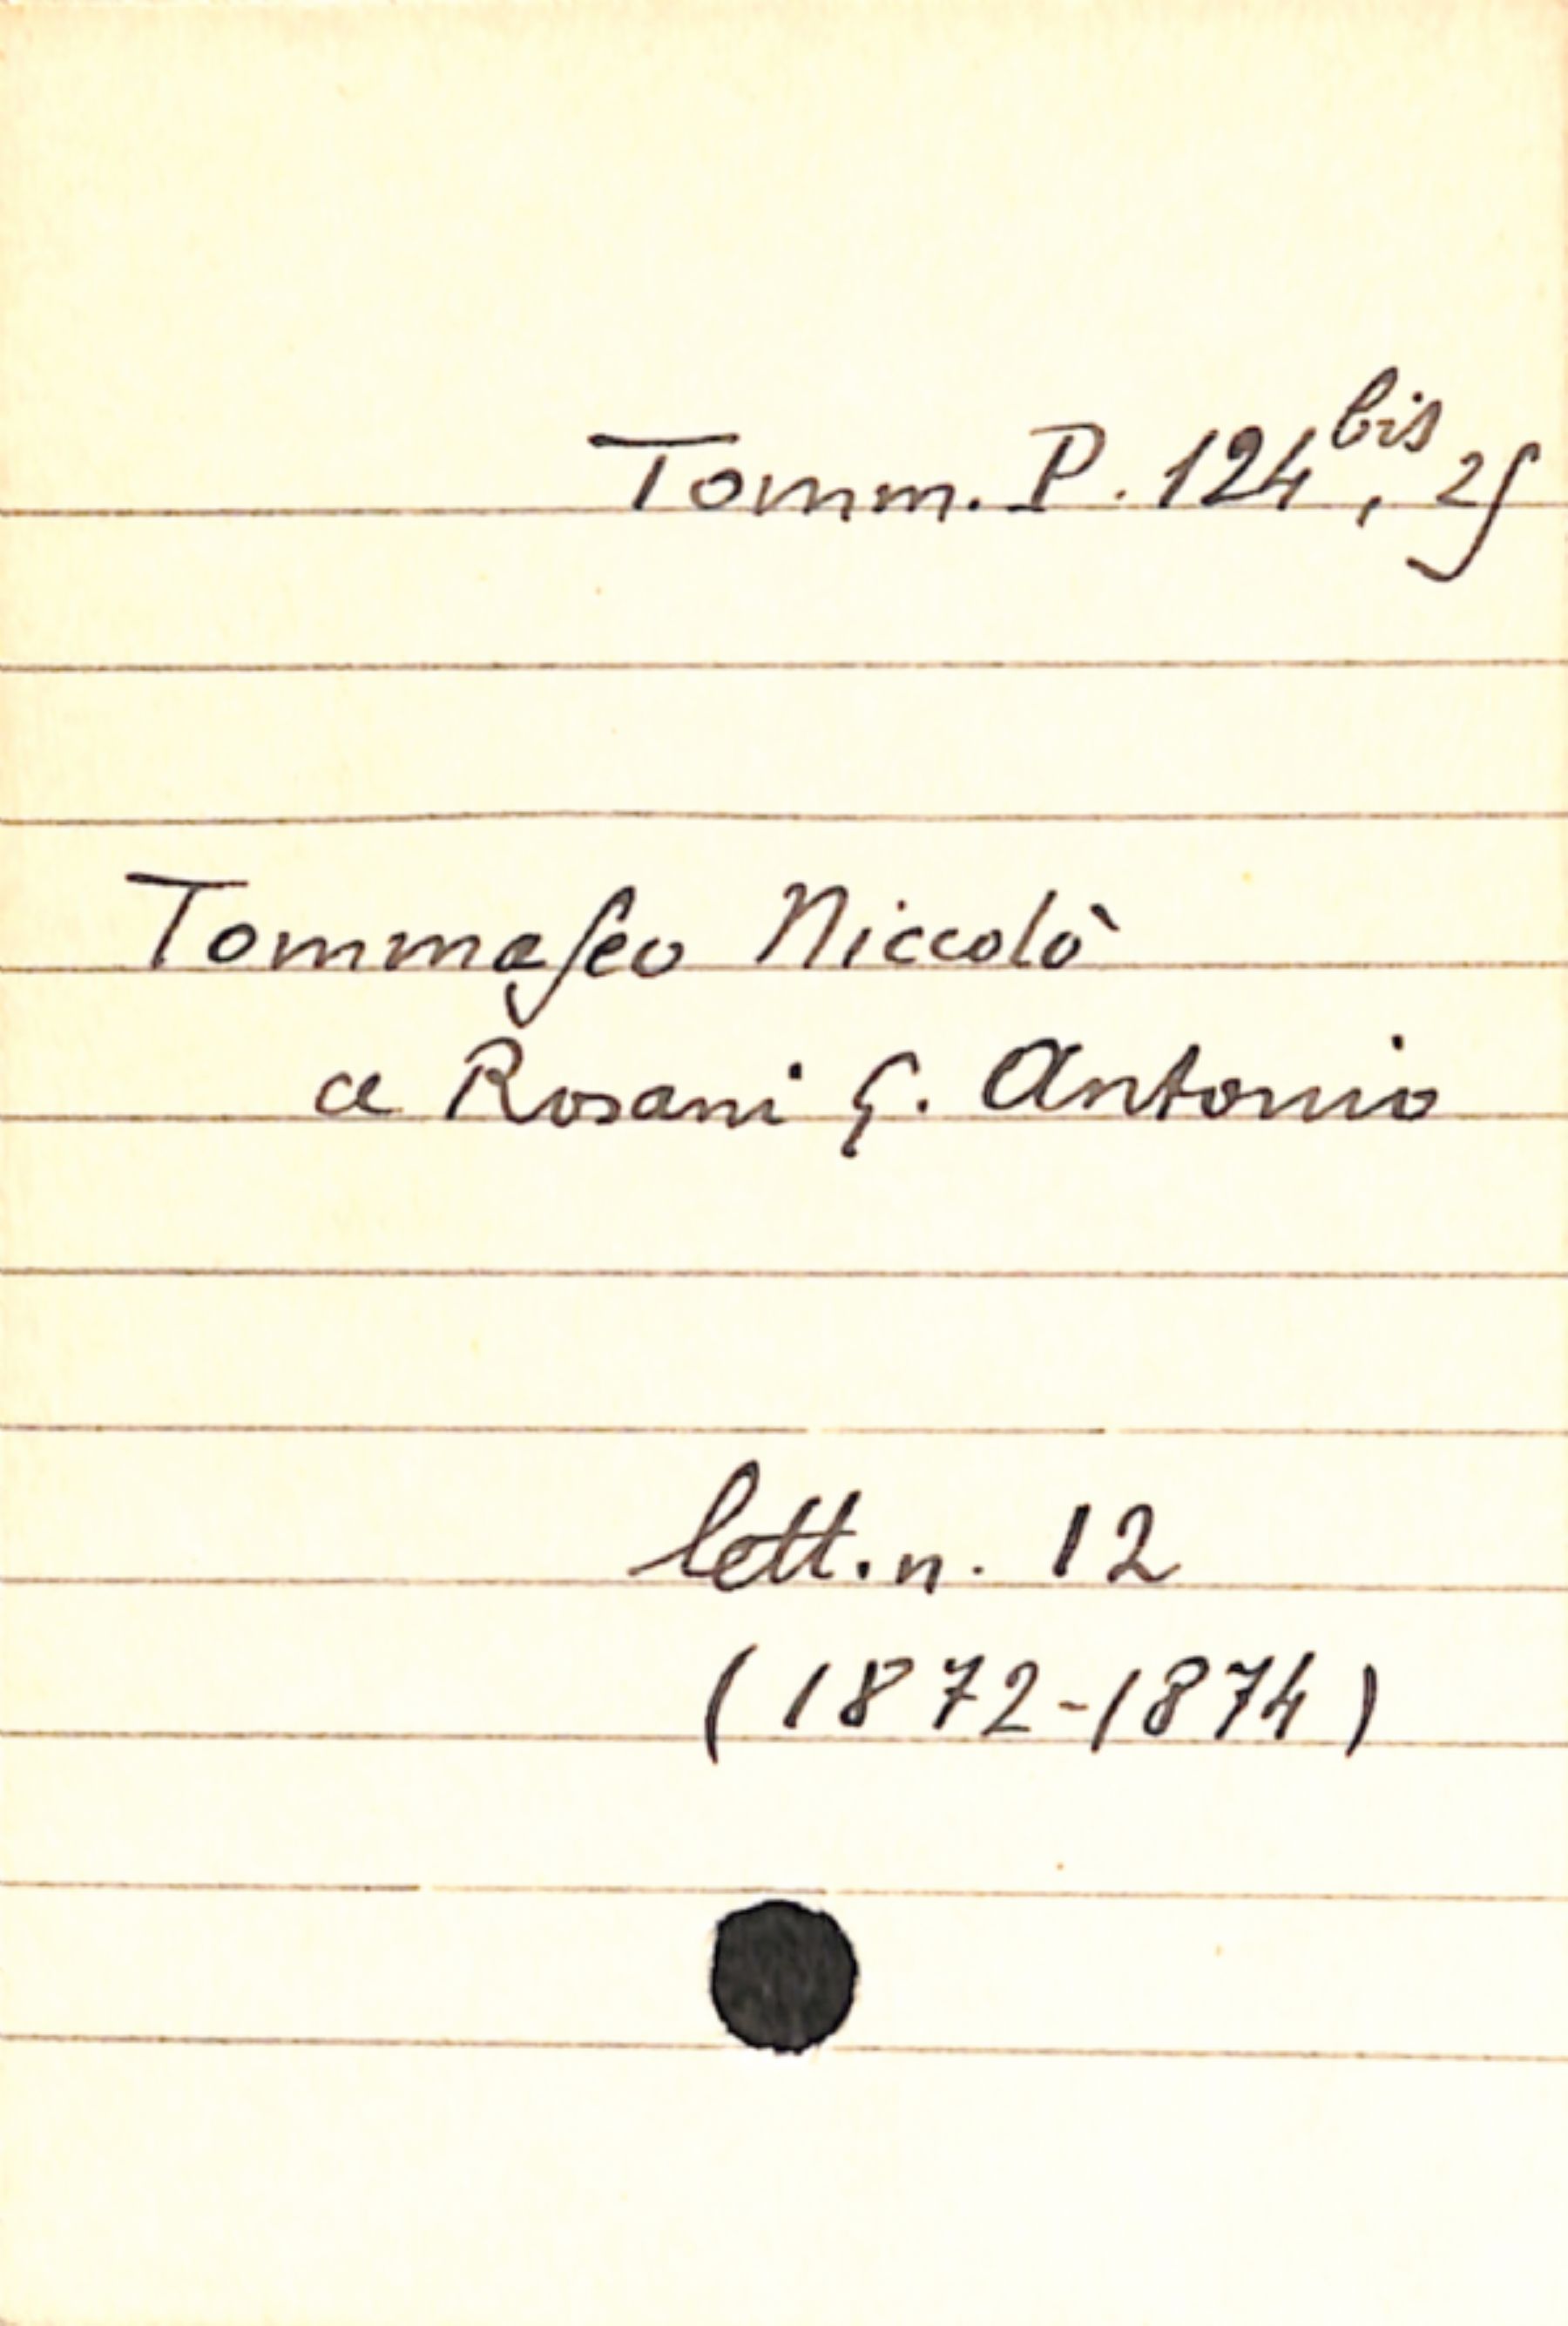 Tomm. P. 124bis, 25
Tommaseo Niccolò
a Rosani G. Antonio
lett. n. 12
(1872-1874)